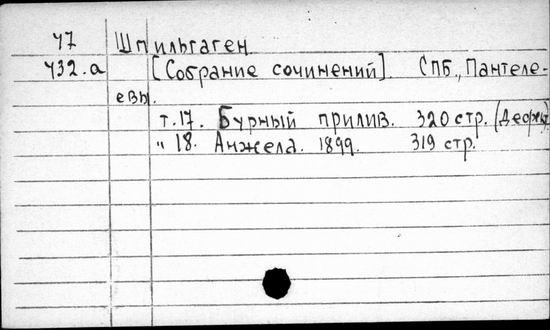 47 Шпильгаген
432.а [Собрание сочинений]. СПБ., Пантеле-
евы.
т.17. Бурный прилив. 320 стр.
" 18. Анжела. 1899. 319 стр.